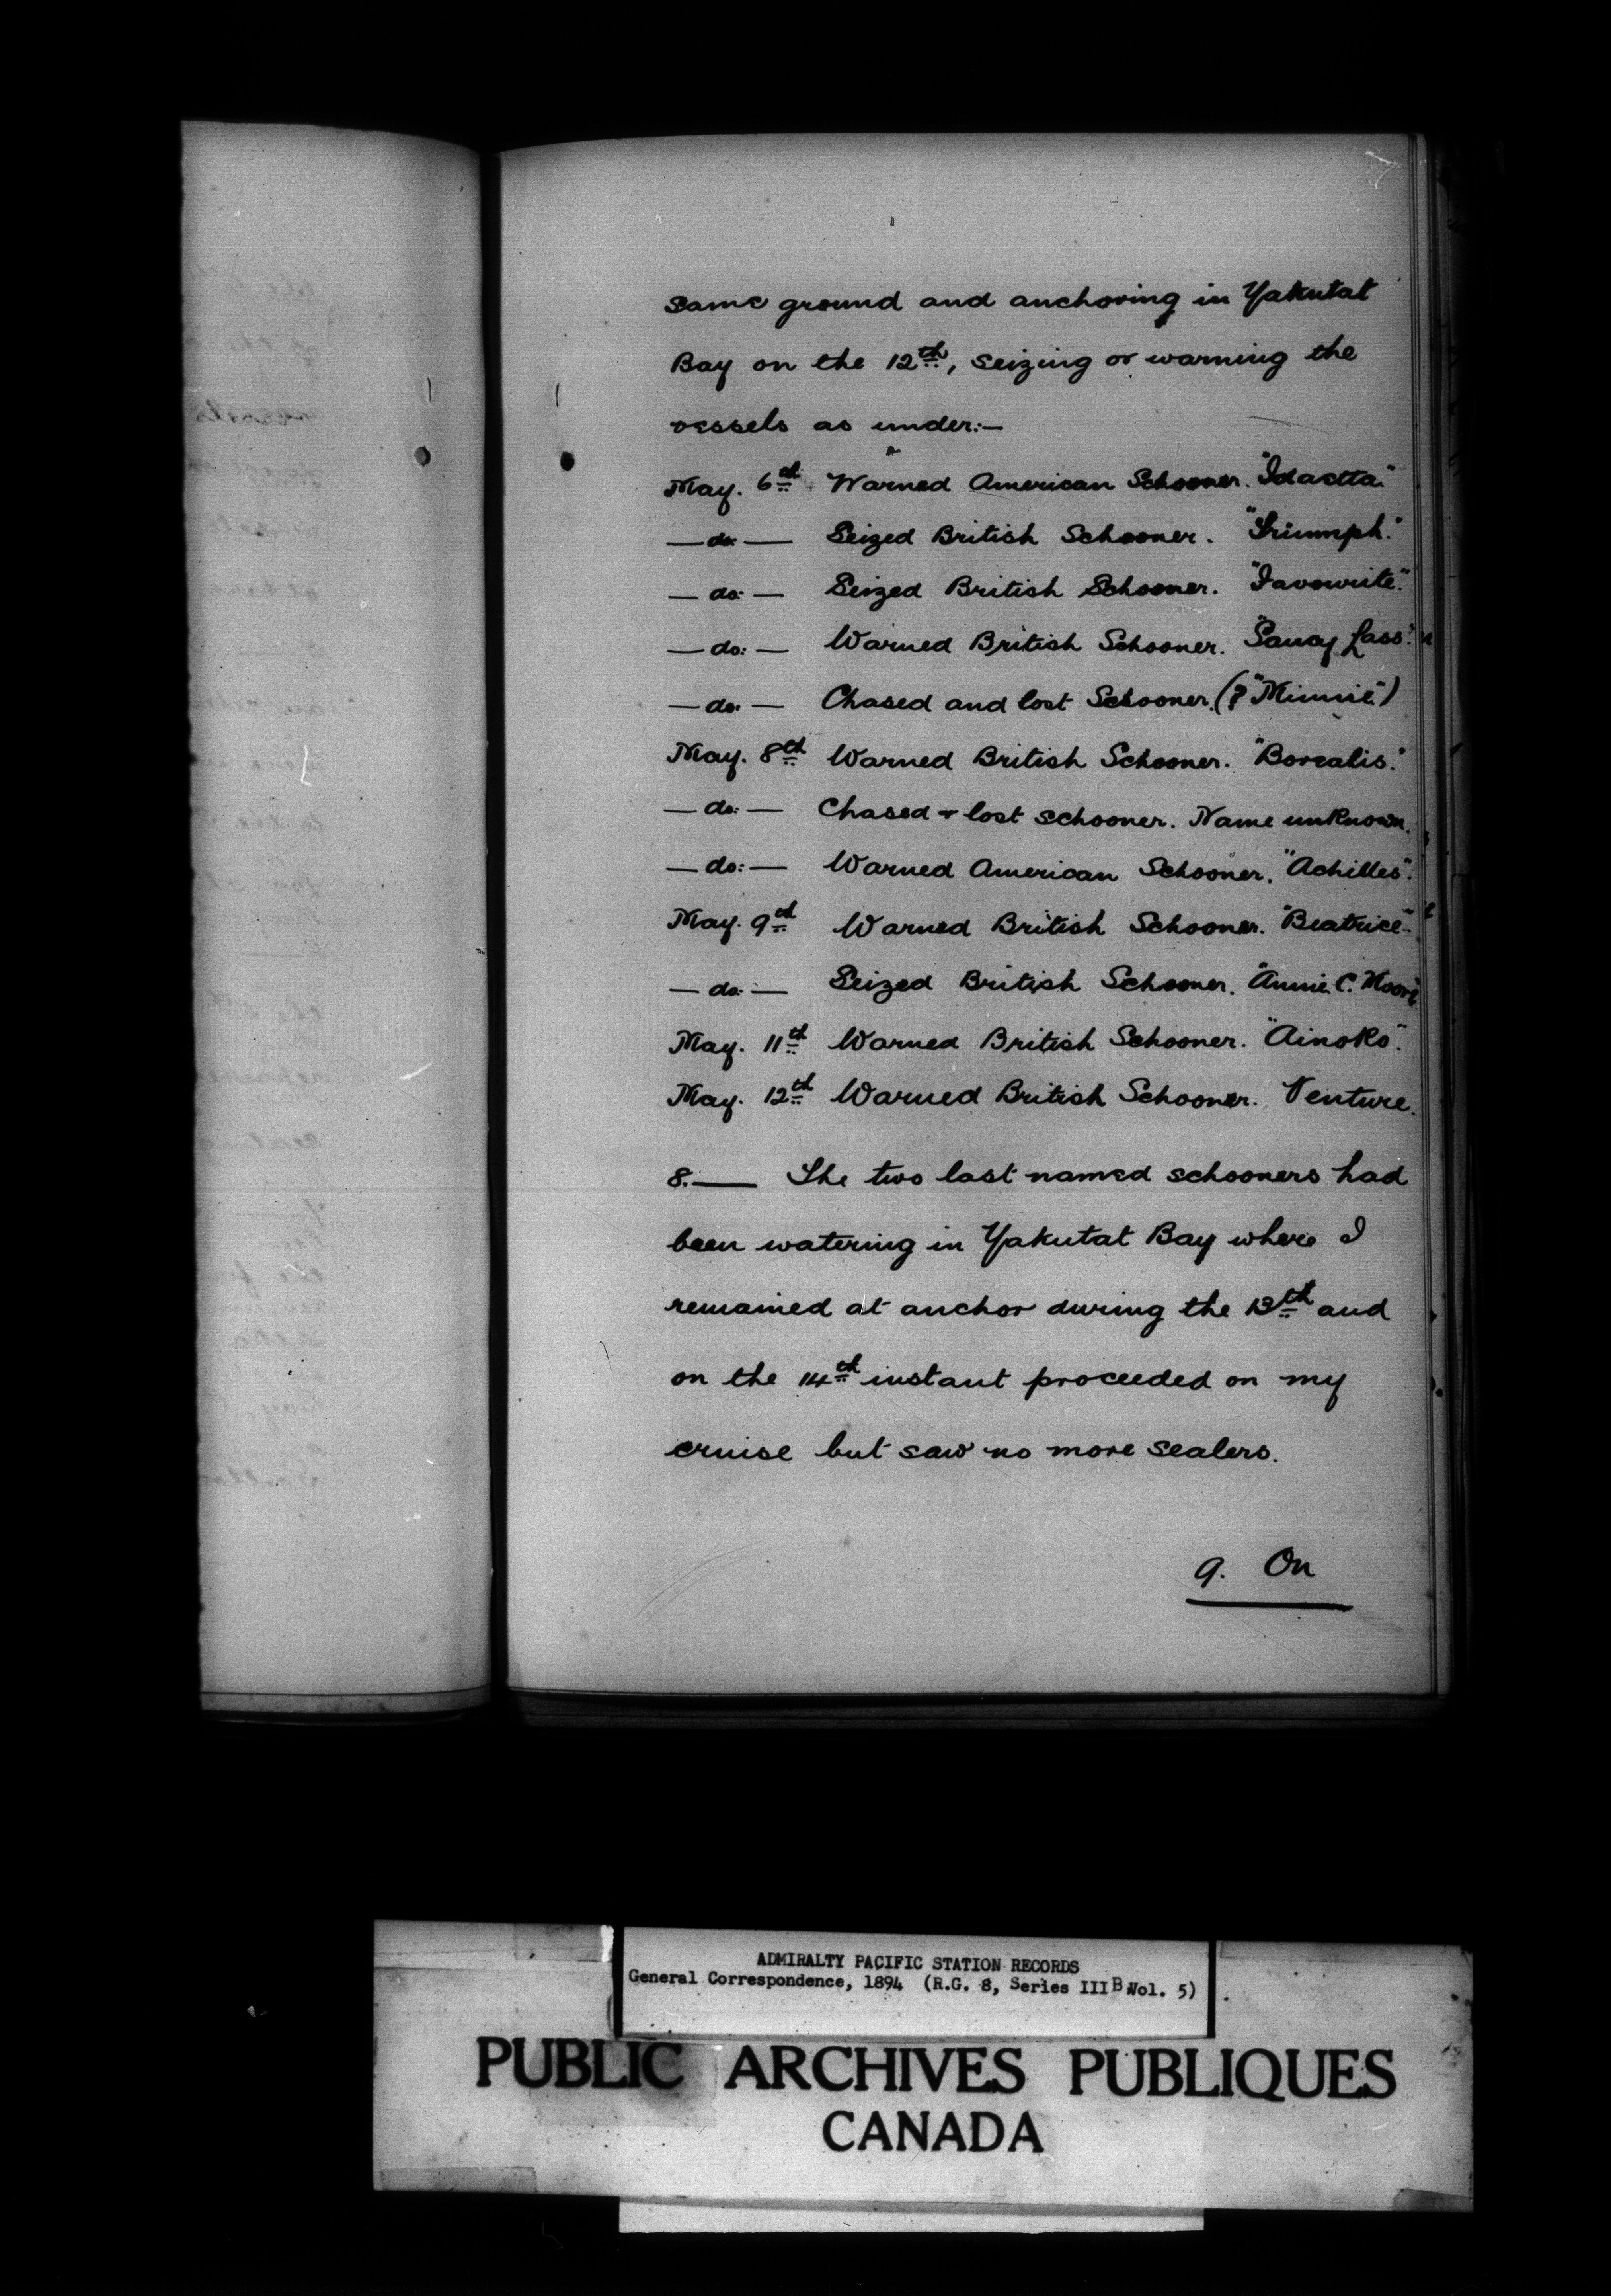 same ground and anchoring in Yakutat
Bay on the 12th, seizing or warning the
vessels as under:—
May. 6th Warned American Schooner. "Idaetta."
— do: — Seized British Schooner. "Triumph."
— do: — Seized British Schooner. "Favourite."
— do: — Warned British Schooner. "Saucy Lass."
— do: — Chased and lost Schooner. (? "Minnie")
May. 8th Warned British Schooner. "Borealis."
— do: — Chased & lost schooner. Name unknown.
— do: — Warned American Schooner. "Achilles".
May. 9th Warned British Schooner. "Beatrice".
— do: — Seized British Schooner. "Annie C. Moore"
May. 11th Warned British Schooner. "Ainoko".
May. 12th Warned British Schooner. Venture.
8. — The two last named schooners had
been watering in Yakutat Bay where I
remained at anchor during the 13th and
on the 14th instant proceeded on my
cruise but saw no more sealers.
9. On
ADMIRALTY PACIFIC STATION RECORDS
General Correspondence, 1894 (R.G. 8, Series III B Vol. 5)
PUBLIC ARCHIVES PUBLIQUES
CANADA